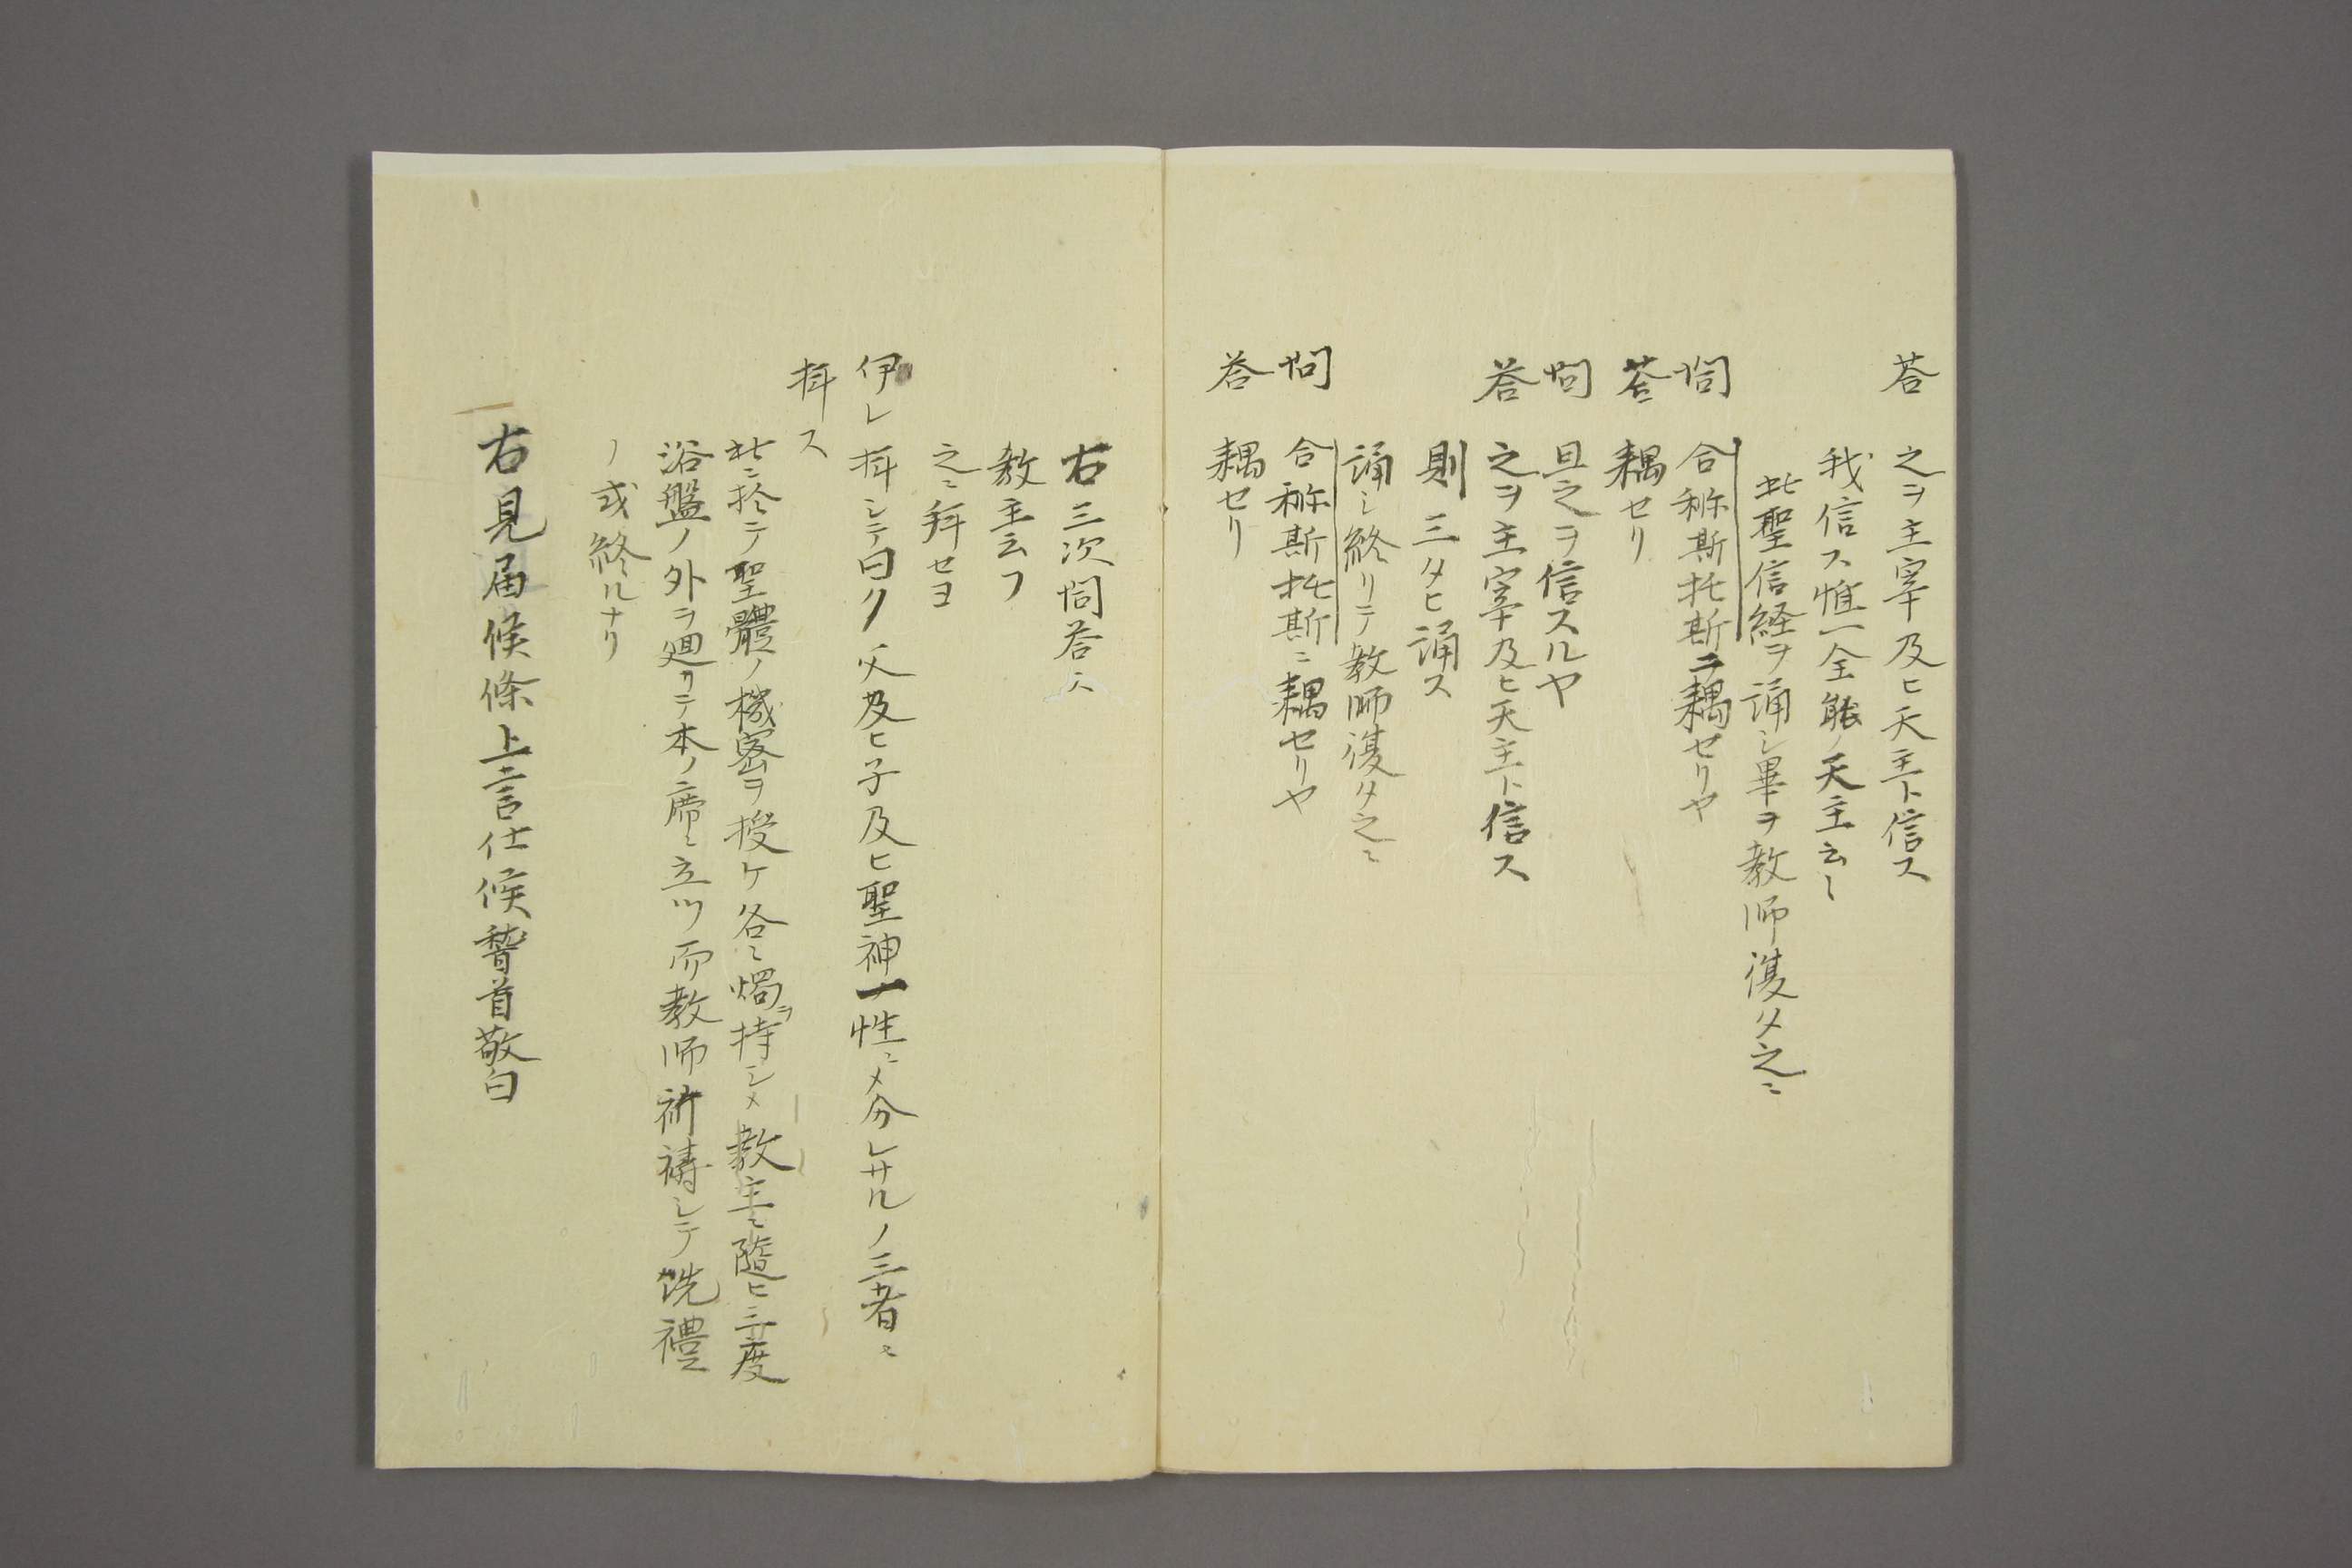 答　之ヲ主宰及ヒ天主ト信ス
我信ス惟一全能ノ天主云々
此聖信経ヲ誦シ畢ヲ教師復タ之ニ
問　合称斯托斯ニ耦セリヤ
答　耦セリ
問　且之ヲ信スルヤ
答　之ヲ主宰及ヒ天主ト信ス
則三タヒ誦ス
誦シ終リテ教師復タ之ニ
問　合称斯托斯ニ耦セリヤ
答　耦セリ
右三次問答ス
教主云フ
之ニ拜セヨ
伊レ拜シテ曰ク父及ヒ子及ヒ聖神一性ニメ分レサルノ三者ニ
拜ス
此ニ於テ聖體ノ機密ヲ授ケ各ニ燭ヲ持シメ教主ニ随ヒ三度
浴盤ノ外ヲ廻リテ本ノ席ニ立ツ而教師祈禱シテ洗禮
ノ式終ルナリ
右見届候條上言仕候稽首敬白